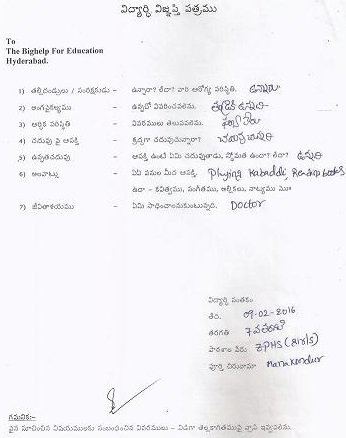 విద్యార్థి విజ్ఞప్తి పత్రము
To
The Bighelp For Education
Hyderabad.
1) తల్లిదండ్రులు / సంరక్షకుడు - ఉన్నారా? లేదా? వారి ఆరోగ్య పరిస్థితి. ఉన్నారు
2) అంగవైకల్యము - ఉన్నచో వివరించవలెను.
3) ఆర్థిక పరిస్థితి - వివరములు తెలుపవలెను.
4) చదువు పై ఆసక్తి - శ్రద్ధగా చదువుచున్నారా?
5) ఉన్నతచదువు - ఆసక్తి ఉంటే ఏమి చదువుతాడు, స్తోమత ఉందా? లేదా? ఉన్నది
6) అలవాట్లు - ఏఏ పనుల మీద ఆసక్తి. Playing Kabaddi, Reading books
ఉదా - కవిత్వము, సంగీతము, అల్లికలు, నాట్యము
7) జీవితాశయము - ఏమి సాధించాలనుకుంటున్నది. Doctor
విద్యార్థి సంతకం
తేది. 09-02-2016
తరగతి 7
పాఠశాల పేరు ZPHS (Girls)
పూర్తి చిరునామా Manakondur
గమనిక:-
పైన సూచించిన విషయములకు సంబంధించిన వివరములు - విడిగా తెల్లకాగితముపై వ్రాసి ఇవ్వవలెను.